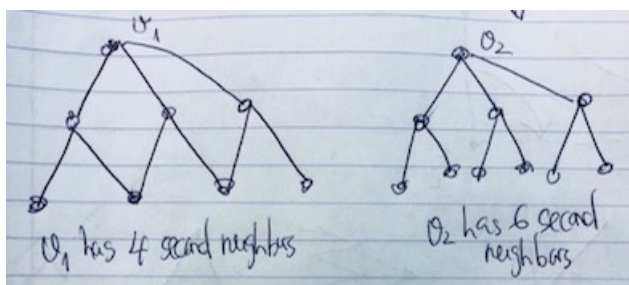 v₁
v₂
v₁ has 4 second neighbors
v₂ has 6 second
neighbors